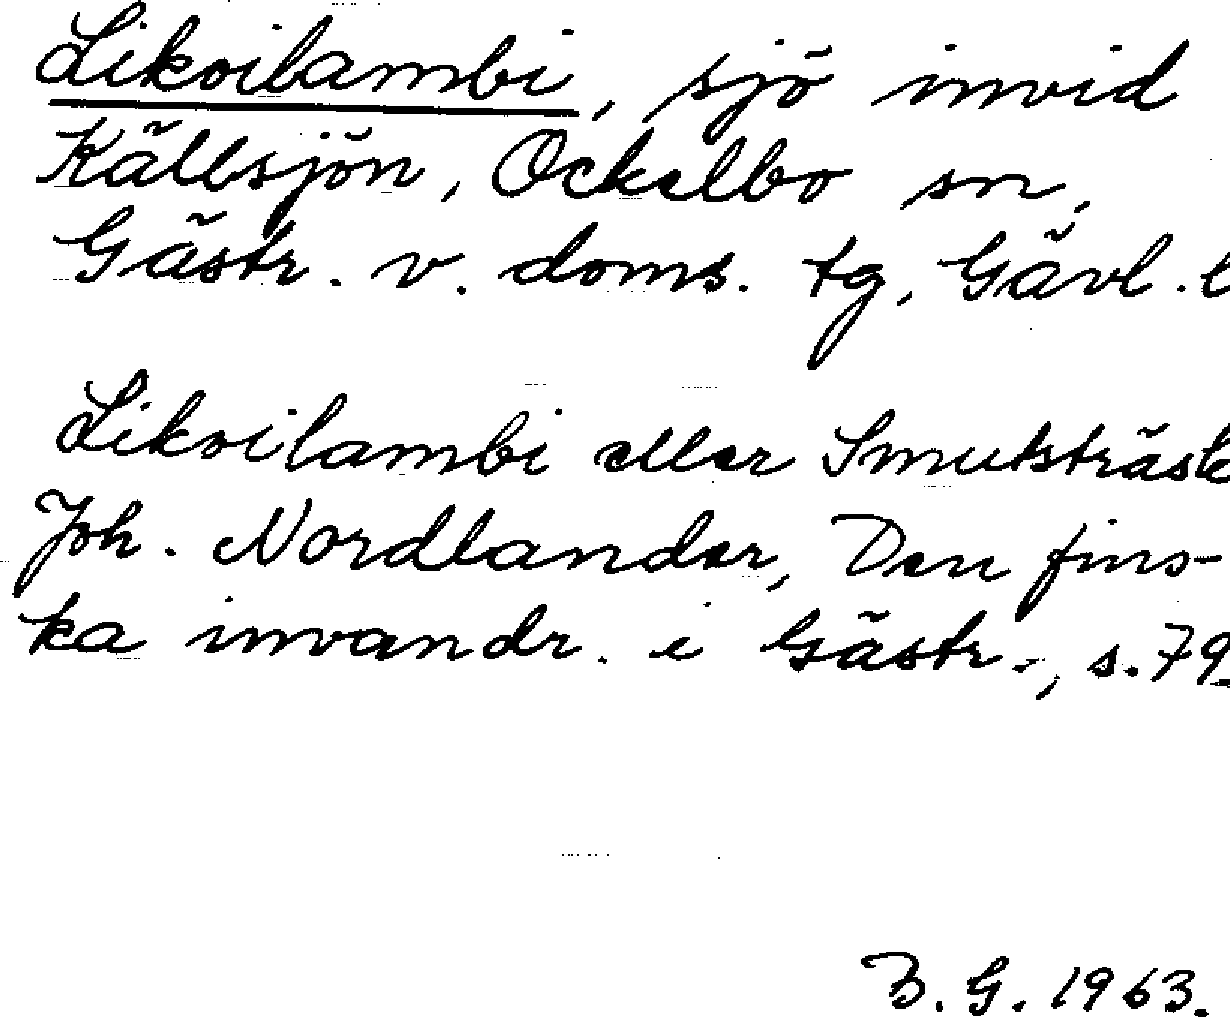 Likoilambi, sjö invid
Källsjön, Ockelbo sn,
Gästr. v. doms. tg, Gävl. l
Likoilambi eller Smutsträsk
Joh. Nordlander, Den fins-
ka invandr. i Gästr., s. 79.
B. G. 1963.